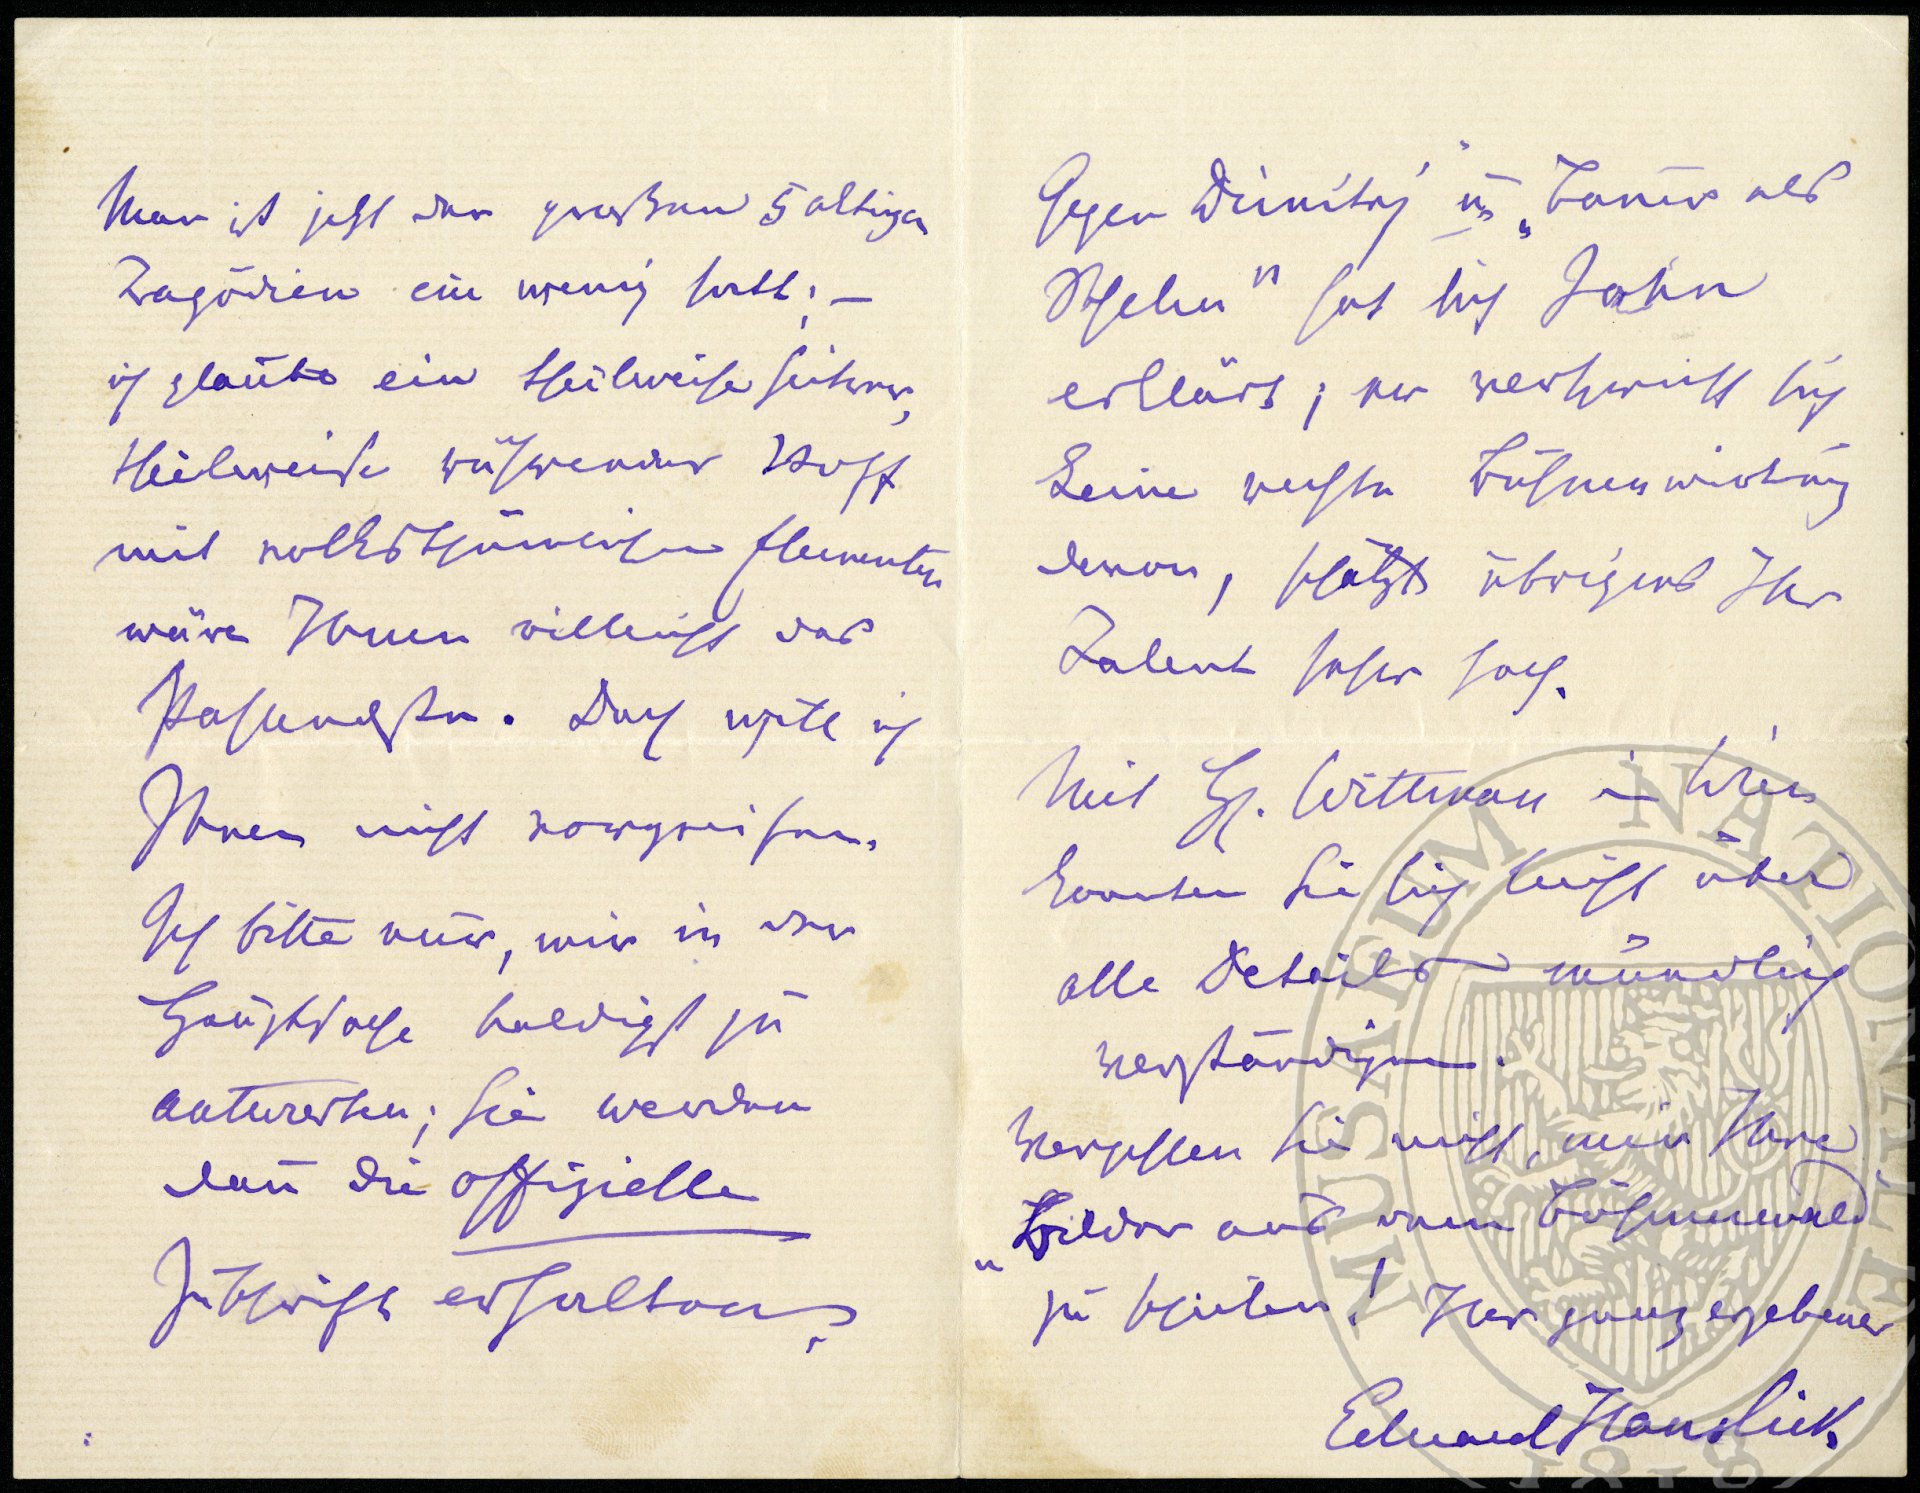 Man ist jetzt der großen 5 aktigen
Tragödien ein wenig satt; –
ich glaube ein theilweise heiterer,
theilweise rührender Stoff
mit volksthümlichen Elementen
wäre Ihnen vielleicht das
Passendste. Doch will ich
Ihnen nicht vorgreifen.
Ich bitte nur, mir in der
Hauptsache baldigst zu
antworten; Sie werden
dañ die offizielle
Zuschrift erhalten.
Gegen Dimitrij u „Bauer als
Schelm" hat sich Jahn
erklärt; er verspricht sich
keine rechte Bühnenwirkung
davon, schätzt übrigens Ihr
Talent sehr hoch.
Mit H. Wittman in Wien
konnten Sie sich leicht über
alle Details mündlich
verständigen.
Vergessen Sie nicht, mir Ihre
„Bilder aus dem Böhmerwald
zu schicken! Ihr ganz ergebener
Eduard Hanslick
MUSAEUM NATIONALE
1818